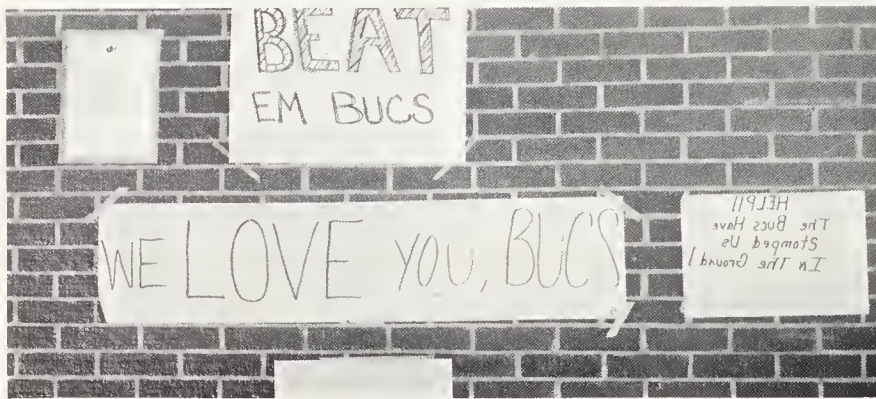 BEAT
EM BUCS
WE LOVE YOU, BUC'S
HELP!!
The Bucs Have
Stomped Us
In The Ground!